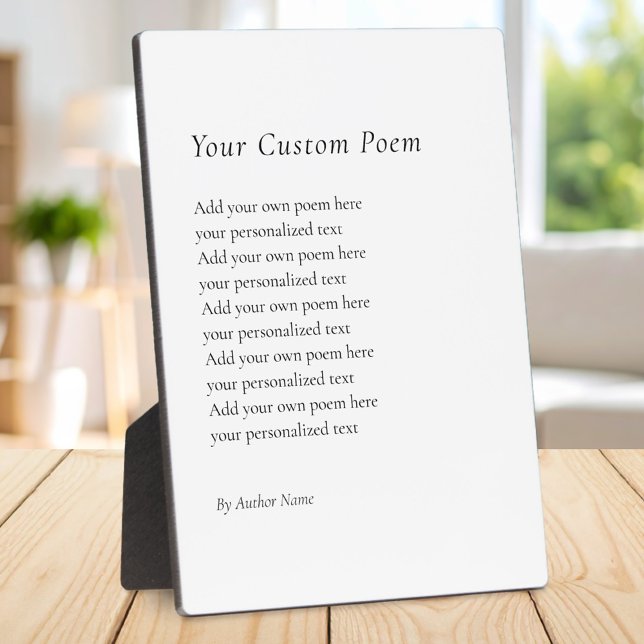 Your Custom Poem
Add your own poem here
your personalized text
Add your own poem here
your personalized text
Add your own poem here
your personalized text
Add your own poem here
your personalized text
Add your own poem here
your personalized text
By Author Name